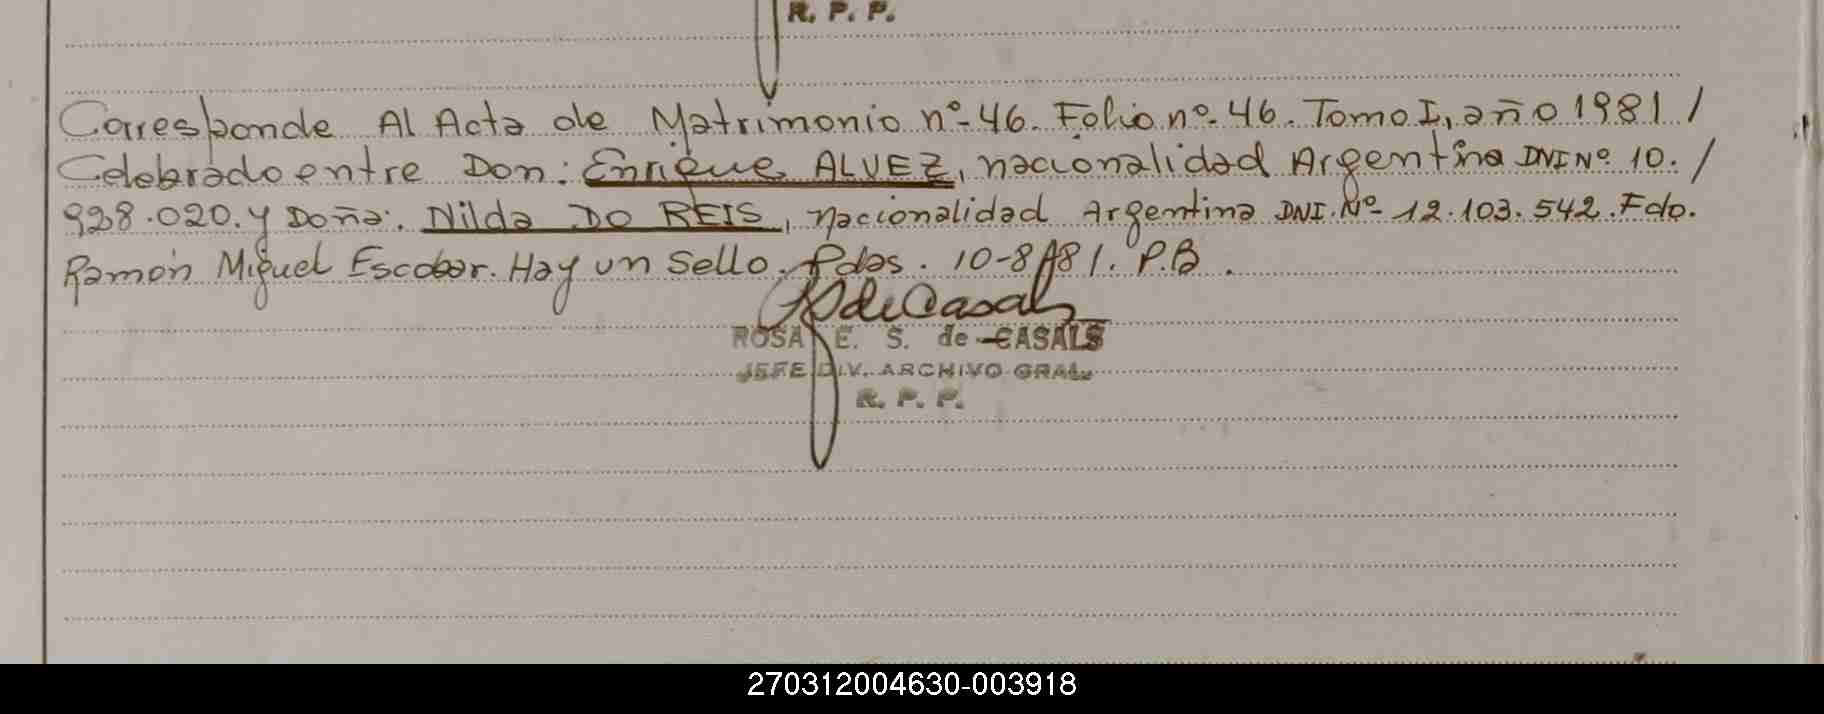 R. P. P.
Corresponde Al Acta de Matrimonio nº 46. Folio nº 46. Tomo I, año 1981 /
Celebrado entre Don: Enrique ALVEZ, nacionalidad Argentina DNI Nº 10. /
928.020. y Doña: Nilda DO REIS, nacionalidad Argentina DNI. Nº 12.103.542. Fdo.
Ramón Miguel Escobar. Hay un Sello. Pdas. 10-8-81. P.B.
ROSA E. S. de CASALS
JEFE DIV. ARCHIVO GRAL.
R. P. P.
270312004630-003918